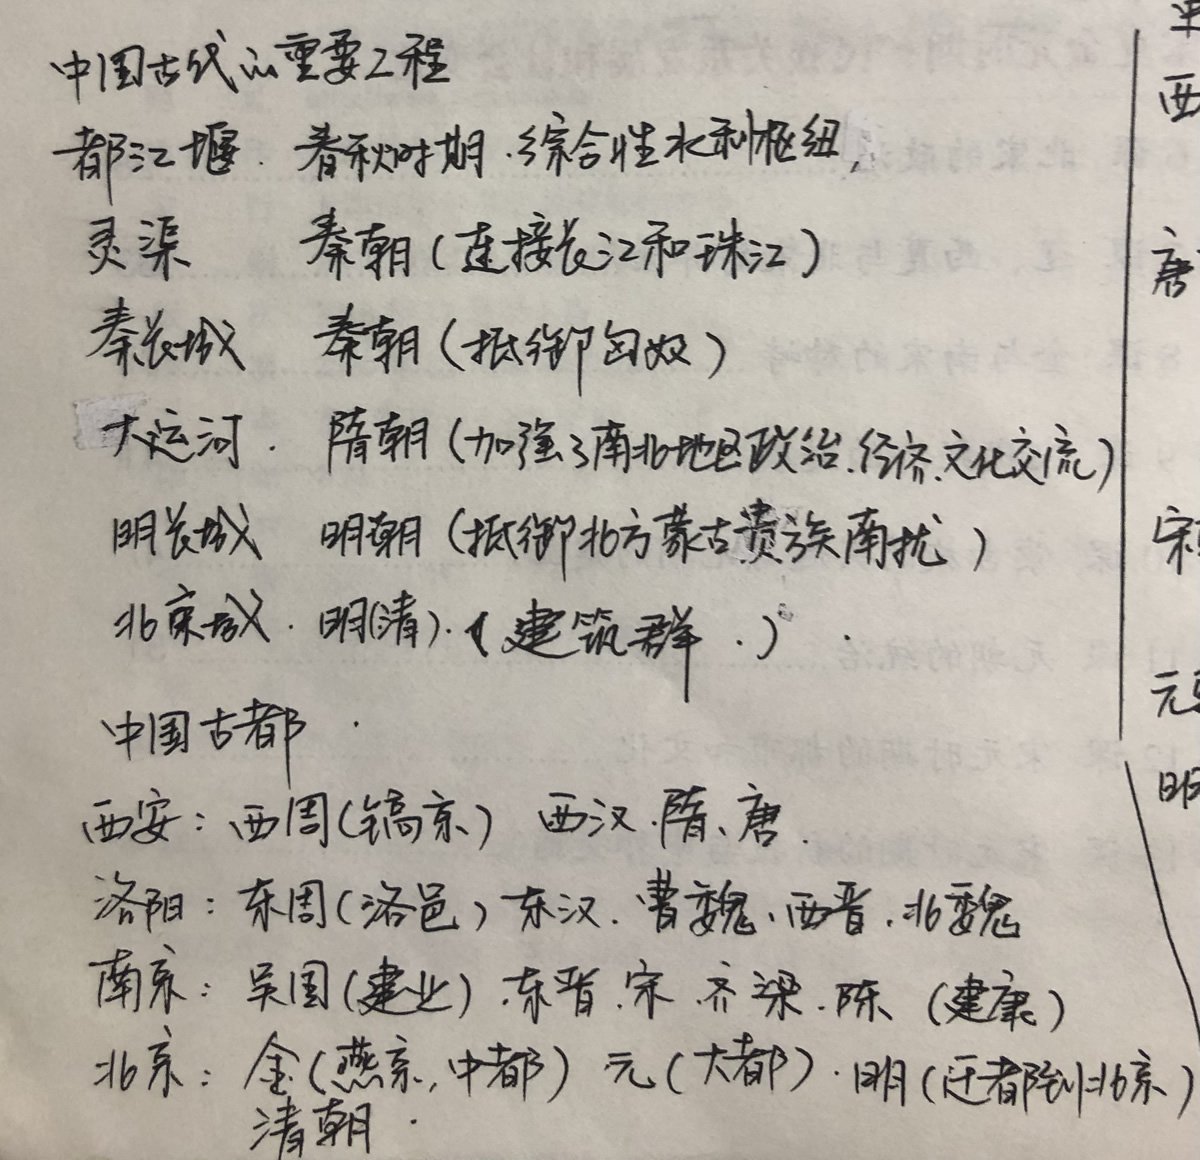 中国古代的重要工程
都江堰. 春秋时期.综合性水利枢纽.
灵渠 秦朝(连接长江和珠江)
秦长城 秦朝(抵御匈奴)
大运河. 隋朝(加强了南北地区政治.经济、文化交流)
明长城 明朝(抵御北方蒙古贵族南扰)
北京城. 明(清).(建筑群.)
中国古都.
西安:西周(镐京) 西汉.隋、唐.
洛阳:东周(洛邑)东汉.曹魏、西晋.北魏
南京:吴国(建业).东晋.宋.齐.梁.陈 (建康)
北京:金(燕京,中都)元(大都).明(迁都到北京)
清朝.
西
唐
宋
元
明